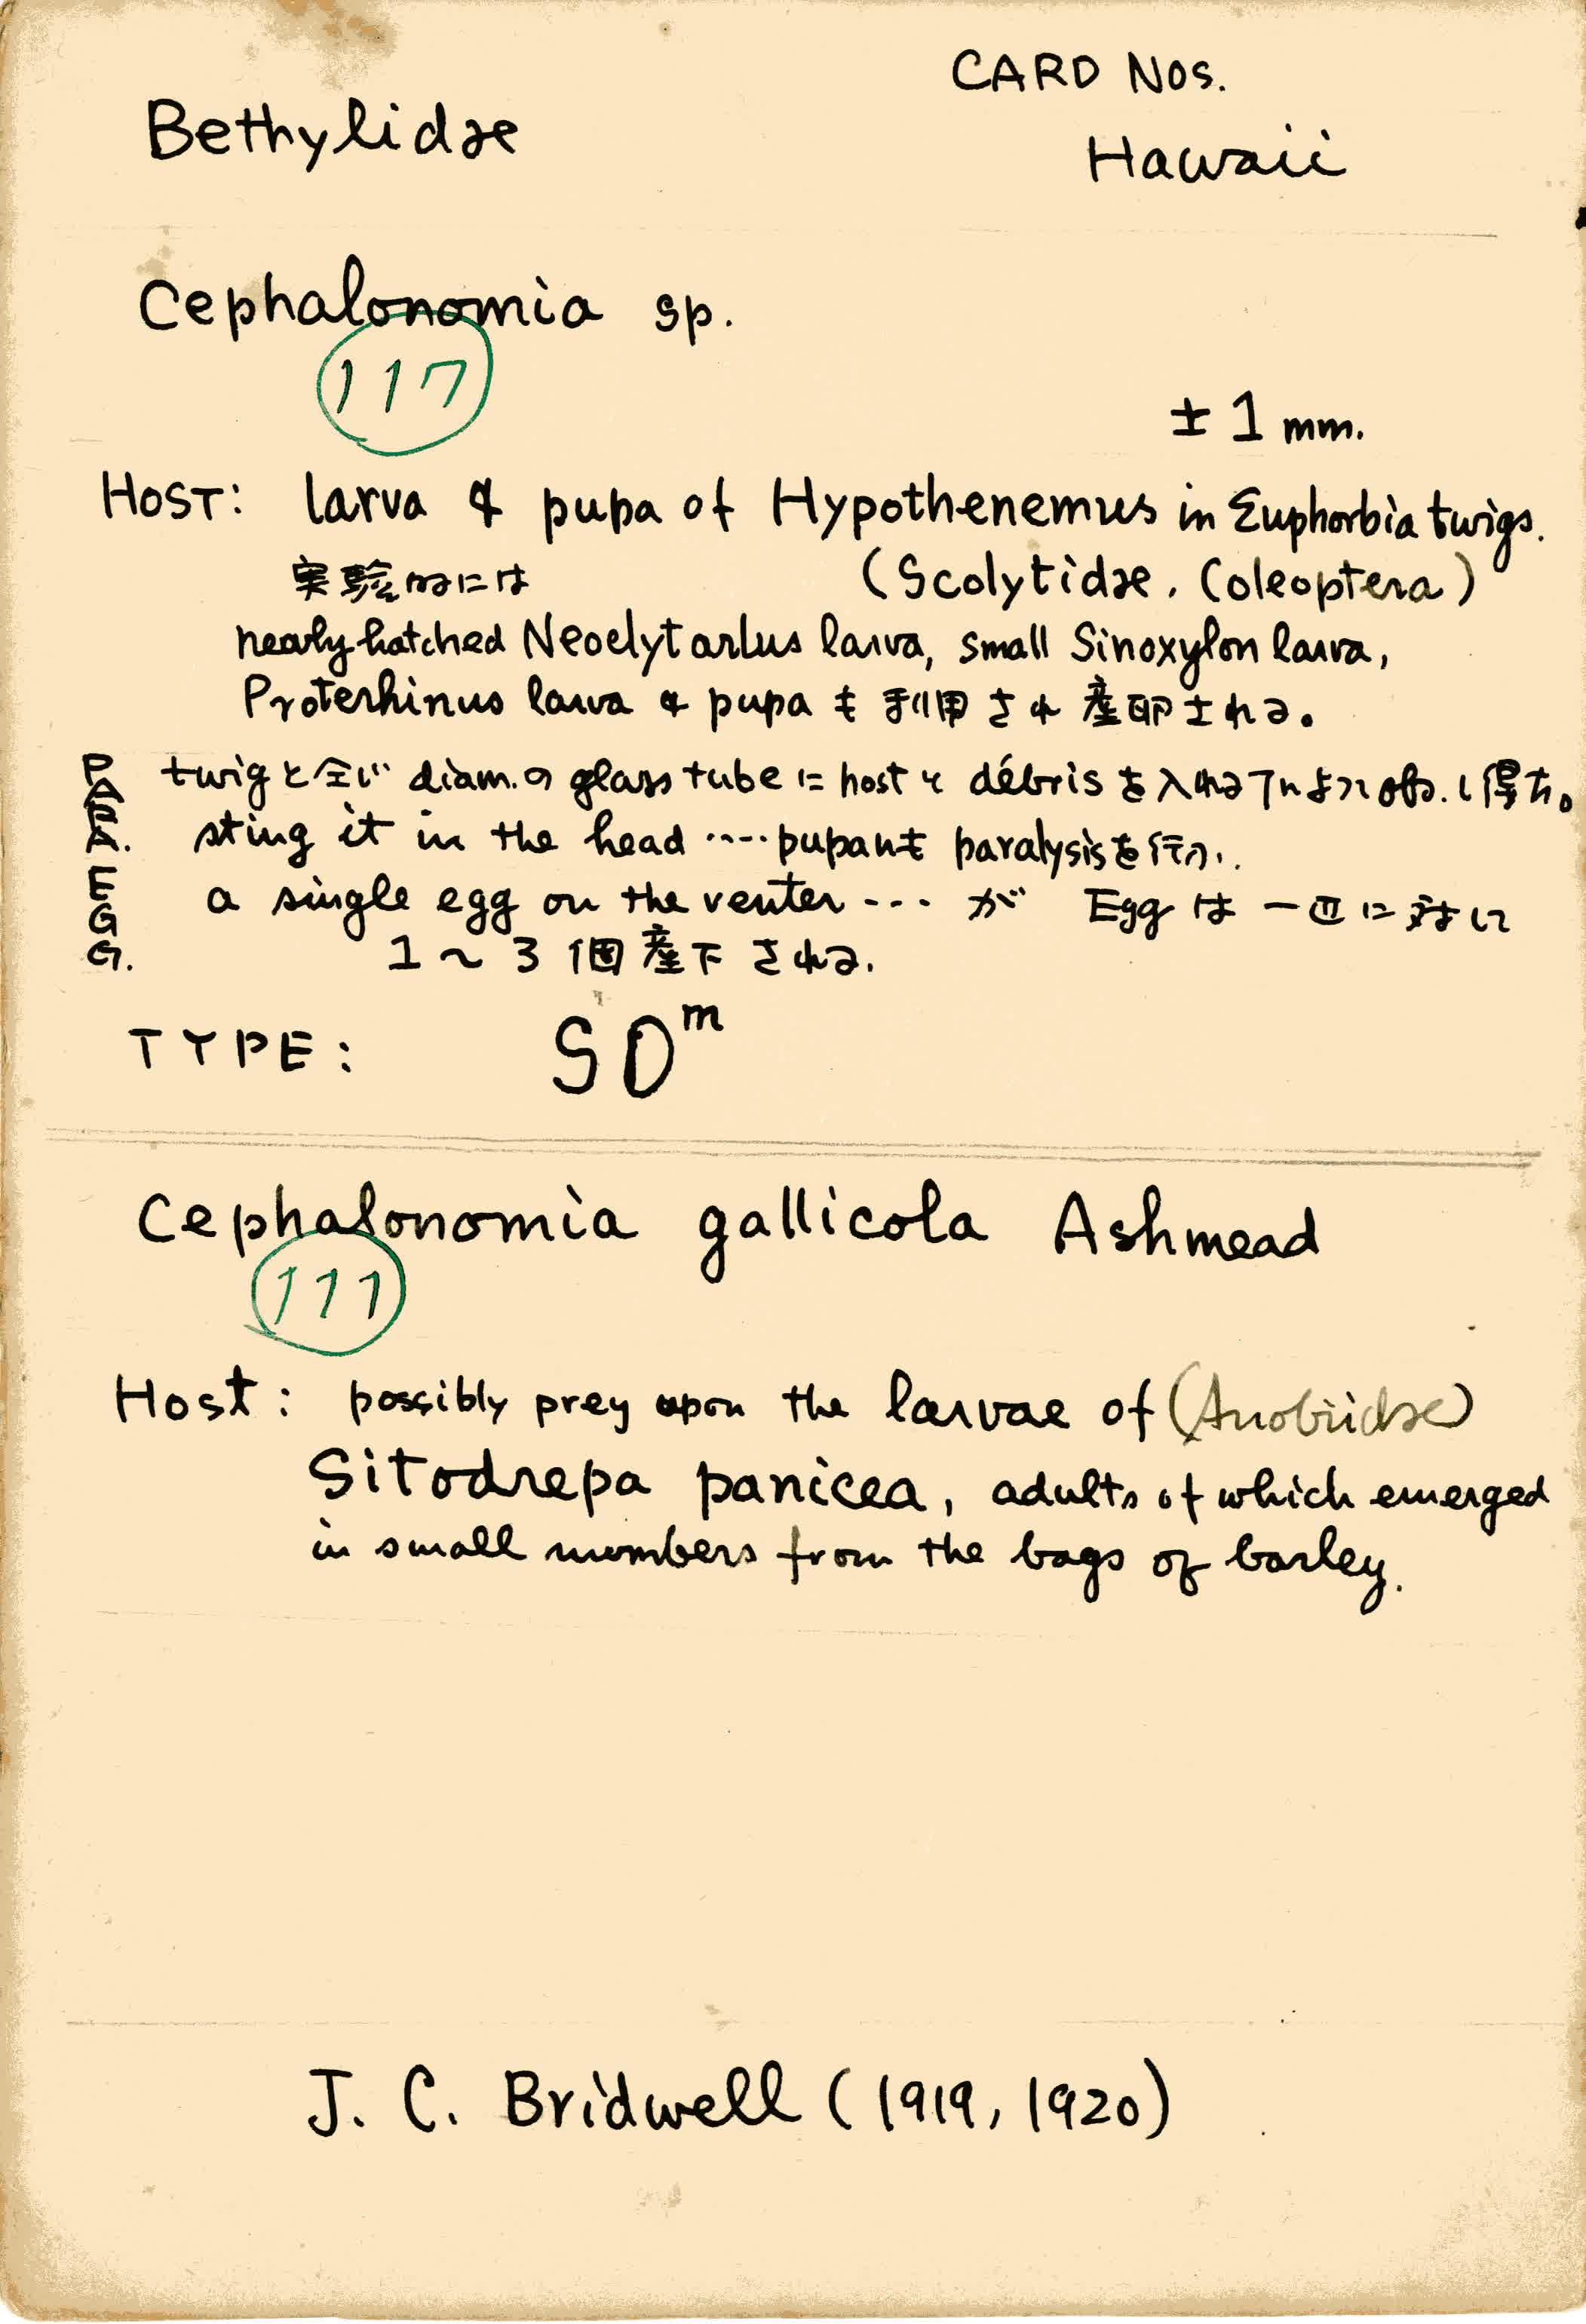 CARD NOS.
Bethylidae
Hawaii
Cephalonomia sp.
117
± 1 mm.
HOST: larva & pupa of Hypothenemus in Euphorbia twigs.
実験的には (Scolytidae, Coleoptera)
newly hatched Neoclytarlus larva, small Sinoxylon larva,
Proterhinus larva & pupa も利用され産卵される。
PARA. twigと全じ diam.の glass tube に host と débris を入れる obs. し得た。
sting it in the head ---- pupaにも paralysisを行ふ.
EGG. a single egg on the venter --- が Egg は 一匹に対して
1～3 個産下される.
TYPE: SO^m
Cephalonomia gallicola Ashmead
111
Host: possibly prey upon the larvae of (Anobiidae)
Sitodrepa panicea, adults of which emerged
in small numbers from the bags of barley.
J. C. Bridwell (1919, 1920)